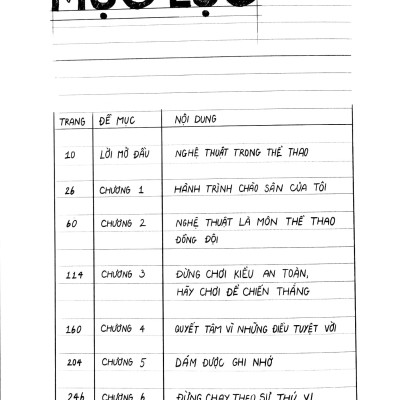 MỤC LỤC
TRANG ĐỀ MỤC NỘI DUNG
10 LỜI MỞ ĐẦU NGHỆ THUẬT TRONG THỂ THAO
26 CHƯƠNG 1 HÀNH TRÌNH CHÁO SÂN CỦA TÔI
60 CHƯƠNG 2 NGHỆ THUẬT LÀ MÔN THỂ THAO
ĐỒNG ĐỘI
114 CHƯƠNG 3 ĐỪNG CHƠI KIỂU AN TOÀN,
HÃY CHƠI ĐỂ CHIẾN THẮNG
160 CHƯƠNG 4 QUYẾT TÂM VÌ NHỮNG ĐIỀU TUYỆT VỜI
204 CHƯƠNG 5 DÁM ĐƯỢC GHI NHỚ
246 CHƯƠNG 6 ĐỪNG CHẠY THEO SỰ THÚ VỊ